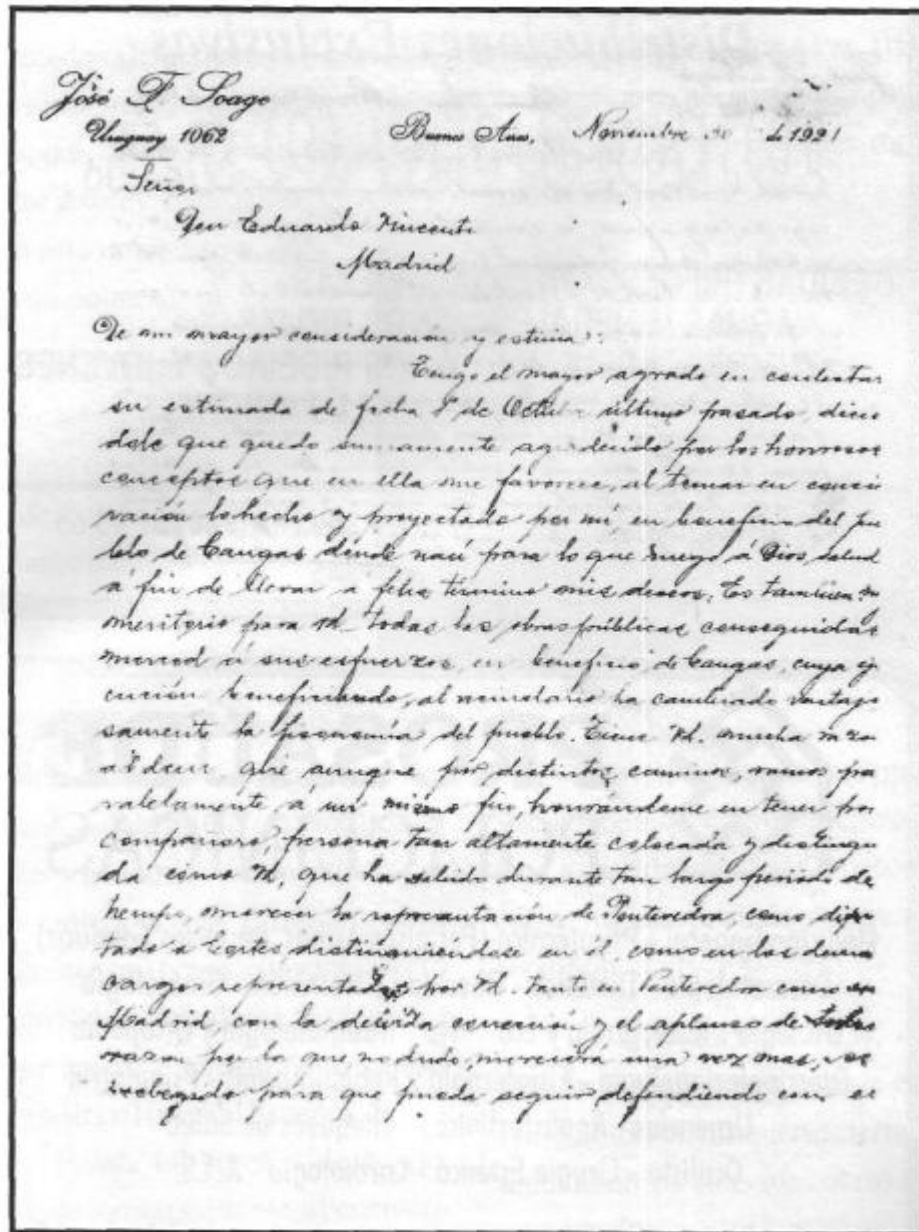 José F. Soage
Uruguay 1062
Buenos Aires, Noviembre 30 de 1921
Señor
Don Eduardo Vincenti
Madrid
De mi mayor consideración y estima:
Tengo el mayor agrado en contestar
su estimada de fecha 8 de Octubre último pasado, dicien
dole que quedo sumamente agradecido por los honrosos
conceptos que en ella me favorece, al tomar en conside
ración lo hecho y proyectado por mí en beneficio del pue
blo de Cangas dónde nací para lo que ruego á Dios, salud
a fin de llevar a feliz término mis deseos. Es también
meritorio para Vd. todas las obras públicas conseguidas
merced á sus esfuerzos, en beneficio de Cangas, cuya eje
cución beneficiando, al vecindario ha cambiado ventajo
samente la fisonomía del pueblo. Tiene Vd. mucha razon
al decir que aunque por distintos caminos, vamos pa
ralelamente á un mismo fin, honrandome en tener por
compañero, persona tan altamente colocada y distingui
da como Vd, que ha sabido durante tan largo periodo de
tiempo, merecer la representación de Pontevedra, como dipu
tado a Cortes distinguiendose en él como en los demas
cargos representados por Vd. tanto en Pontevedra como en
Madrid, con la debida corrección y el aplauso de todos
razon por la que no dudo, merecerá una vez mas, ser
reelegido para que pueda seguir defendiendo con el